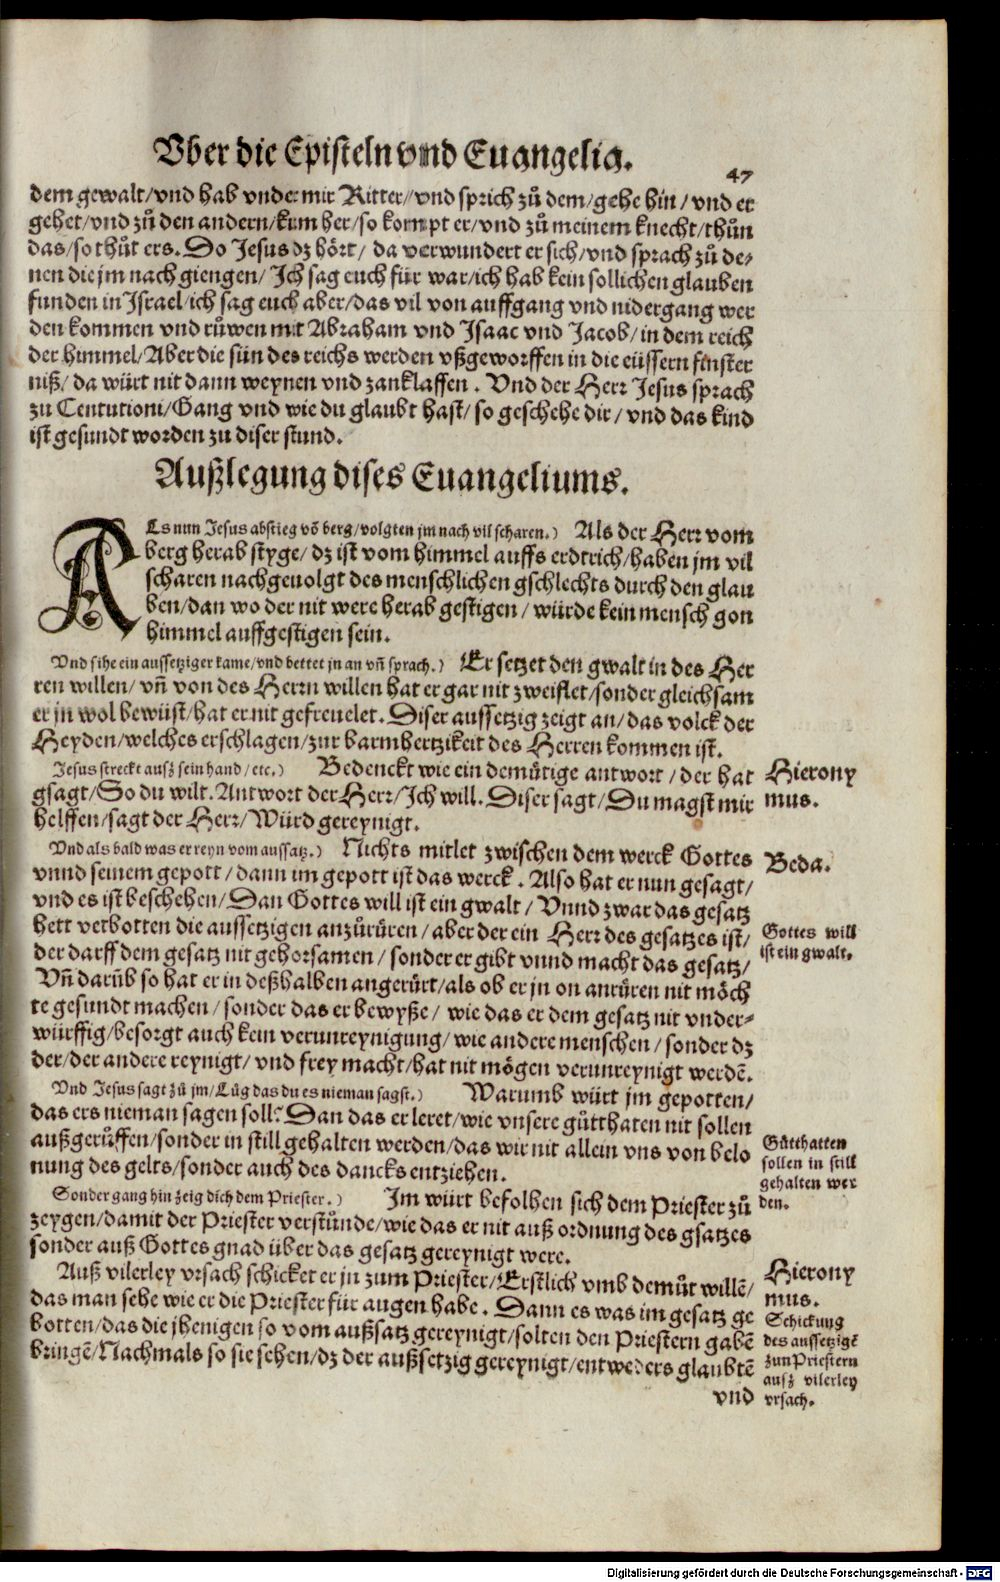 Vber die Episteln vnd Euangelia.
47
dem gewalt/vnd hab vnder mir Ritter/vnd sprich zů dem/gehe hin/vnd er
gehet/vnd zů den andern/kum her/so kompt er/vnd zů meinem knecht/thůn
das/so thůt ers. Do Jesus dz hört/ da verwundert er sich/vnd sprach zů de-
nen die jm nach giengen/ Ich sag euch für war/ich hab kein sollichen glauben
funden in Israel/ich sag euch aber/das vil von auffgang vnd nidergang wer
den kommen vnd růwen mit Abraham vnd Isaac vnd Jacob/in dem reich
der himmel/Aber die sün des reichs werden vßgeworffen in die eüssern finster
niß/da würt nit dann weynen vnd zanklaffen. Vnd der Herr Jesus sprach
zu Centutioni/Gang vnd wie du glaubt hast/so geschehe dir/vnd das kind
ist gesundt worden zu diser stund.
Außlegung dises Euangeliums.
ALs nun Jesus abstieg võ berg/volgten jm nach vil scharen.) Als der Herr vom
berg herab styge/dz ist vom himmel auffs erdtrich/haben jm vil
scharen nachgeuolgt des menschlichen gschlechts durch den glau
ben/dan wo der nit were herab gestigen/würde kein mensch gon
himmel auffgestigen sein.
Vnd sihe ein aussetziger kame/vnd bettet jn an vñ sprach.) Er setzet den gwalt in des Her
ren willen/vñ von des Herrn willen hat er gar nit zweiflet/sonder gleichsam
er jn wol bewüst/hat er nit gefreuelet. Diser aussetzig zeigt an/das volck der
Heyden/welches erschlagen/zur barmhertzikeit des Herren kommen ist.
Jesus streckt ausz sein hand/etc.) Bedenckt wie ein demütige antwort/der hat
gsagt/So du wilt. Antwort der Herr/Ich will. Diser sagt/Du magst mir
helffen/sagt der Herr/Würd gereynigt.
Hierony
mus.
Vnd als bald was er reyn vom aussatz.) Nichts mitlet zwischen dem werck Gottes
vnnd seinem gepott/dann im gepott ist das werck. Also hat er nun gesagt/
vnd es ist beschehen/Dan Gottes will ist ein gwalt/Vnnd zwar das gesatz
hett verbotten die aussetzigen anzůrüren/aber der ein Herr des gesatzes ist/
der darff dem gesatz nit gehorsamen/sonder er gibt vnnd macht das gesatz/
Vñ darũb so hat er in deßhalben angerürt/als ob er jn on anrüren nit möch
te gesundt machen/sonder das er bewyße/wie das er dem gesatz nit vnder-
würffig/besorgt auch kein verunreynigung/wie andere menschen/sonder dz
der/der andere reynigt/vnd frey macht/hat nit mögen verunreynigt werdẽ.
Beda.
Gottes will
ist ein gwalt.
Vnd Jesus sagt zů jm/Lůg das du es nieman sagst.) Warumb würt jm gepotten/
das ers nieman sagen soll? Dan das er leret/wie vnsere gůtthaten nit sollen
außgerůffen/sonder in still gehalten werden/das wir nit allein vns von belo
nung des gelts/sonder auch des dancks entziehen.
Gůtthatten
sollen in still
gehalten wer
den.
Sonder gang hin zeig dich dem Priester.) Im würt befolhen sich dem Priester zů
zeygen/damit der Priester verstünde/wie das er nit auß ordnung des gsatzes
sonder auß Gottes gnad über das gesatz gereynigt were.
Auß vilerley vrsach schicket er jn zum Priester/Erstlich vmb demůt willẽ/
das man sehe wie er die Priester für augen habe. Dann es was im gesatz ge
botten/das die jhenigen so vom außsatz gereynigt/solten den Priestern gabẽ
bringẽ/Nachmals so sie sehen/dz der außsetzig gereynigt/entweders glaubtẽ
vnd
Hierony
mus.
Schickung
des aussetzigẽ
zun Priestern
ausz vilerley
vrsach.
Digitalisierung gefördert durch die Deutsche Forschungsgemeinschaft - DFG